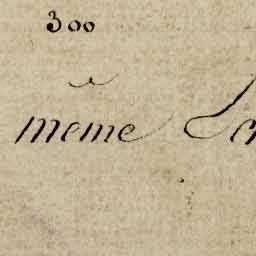 300
même